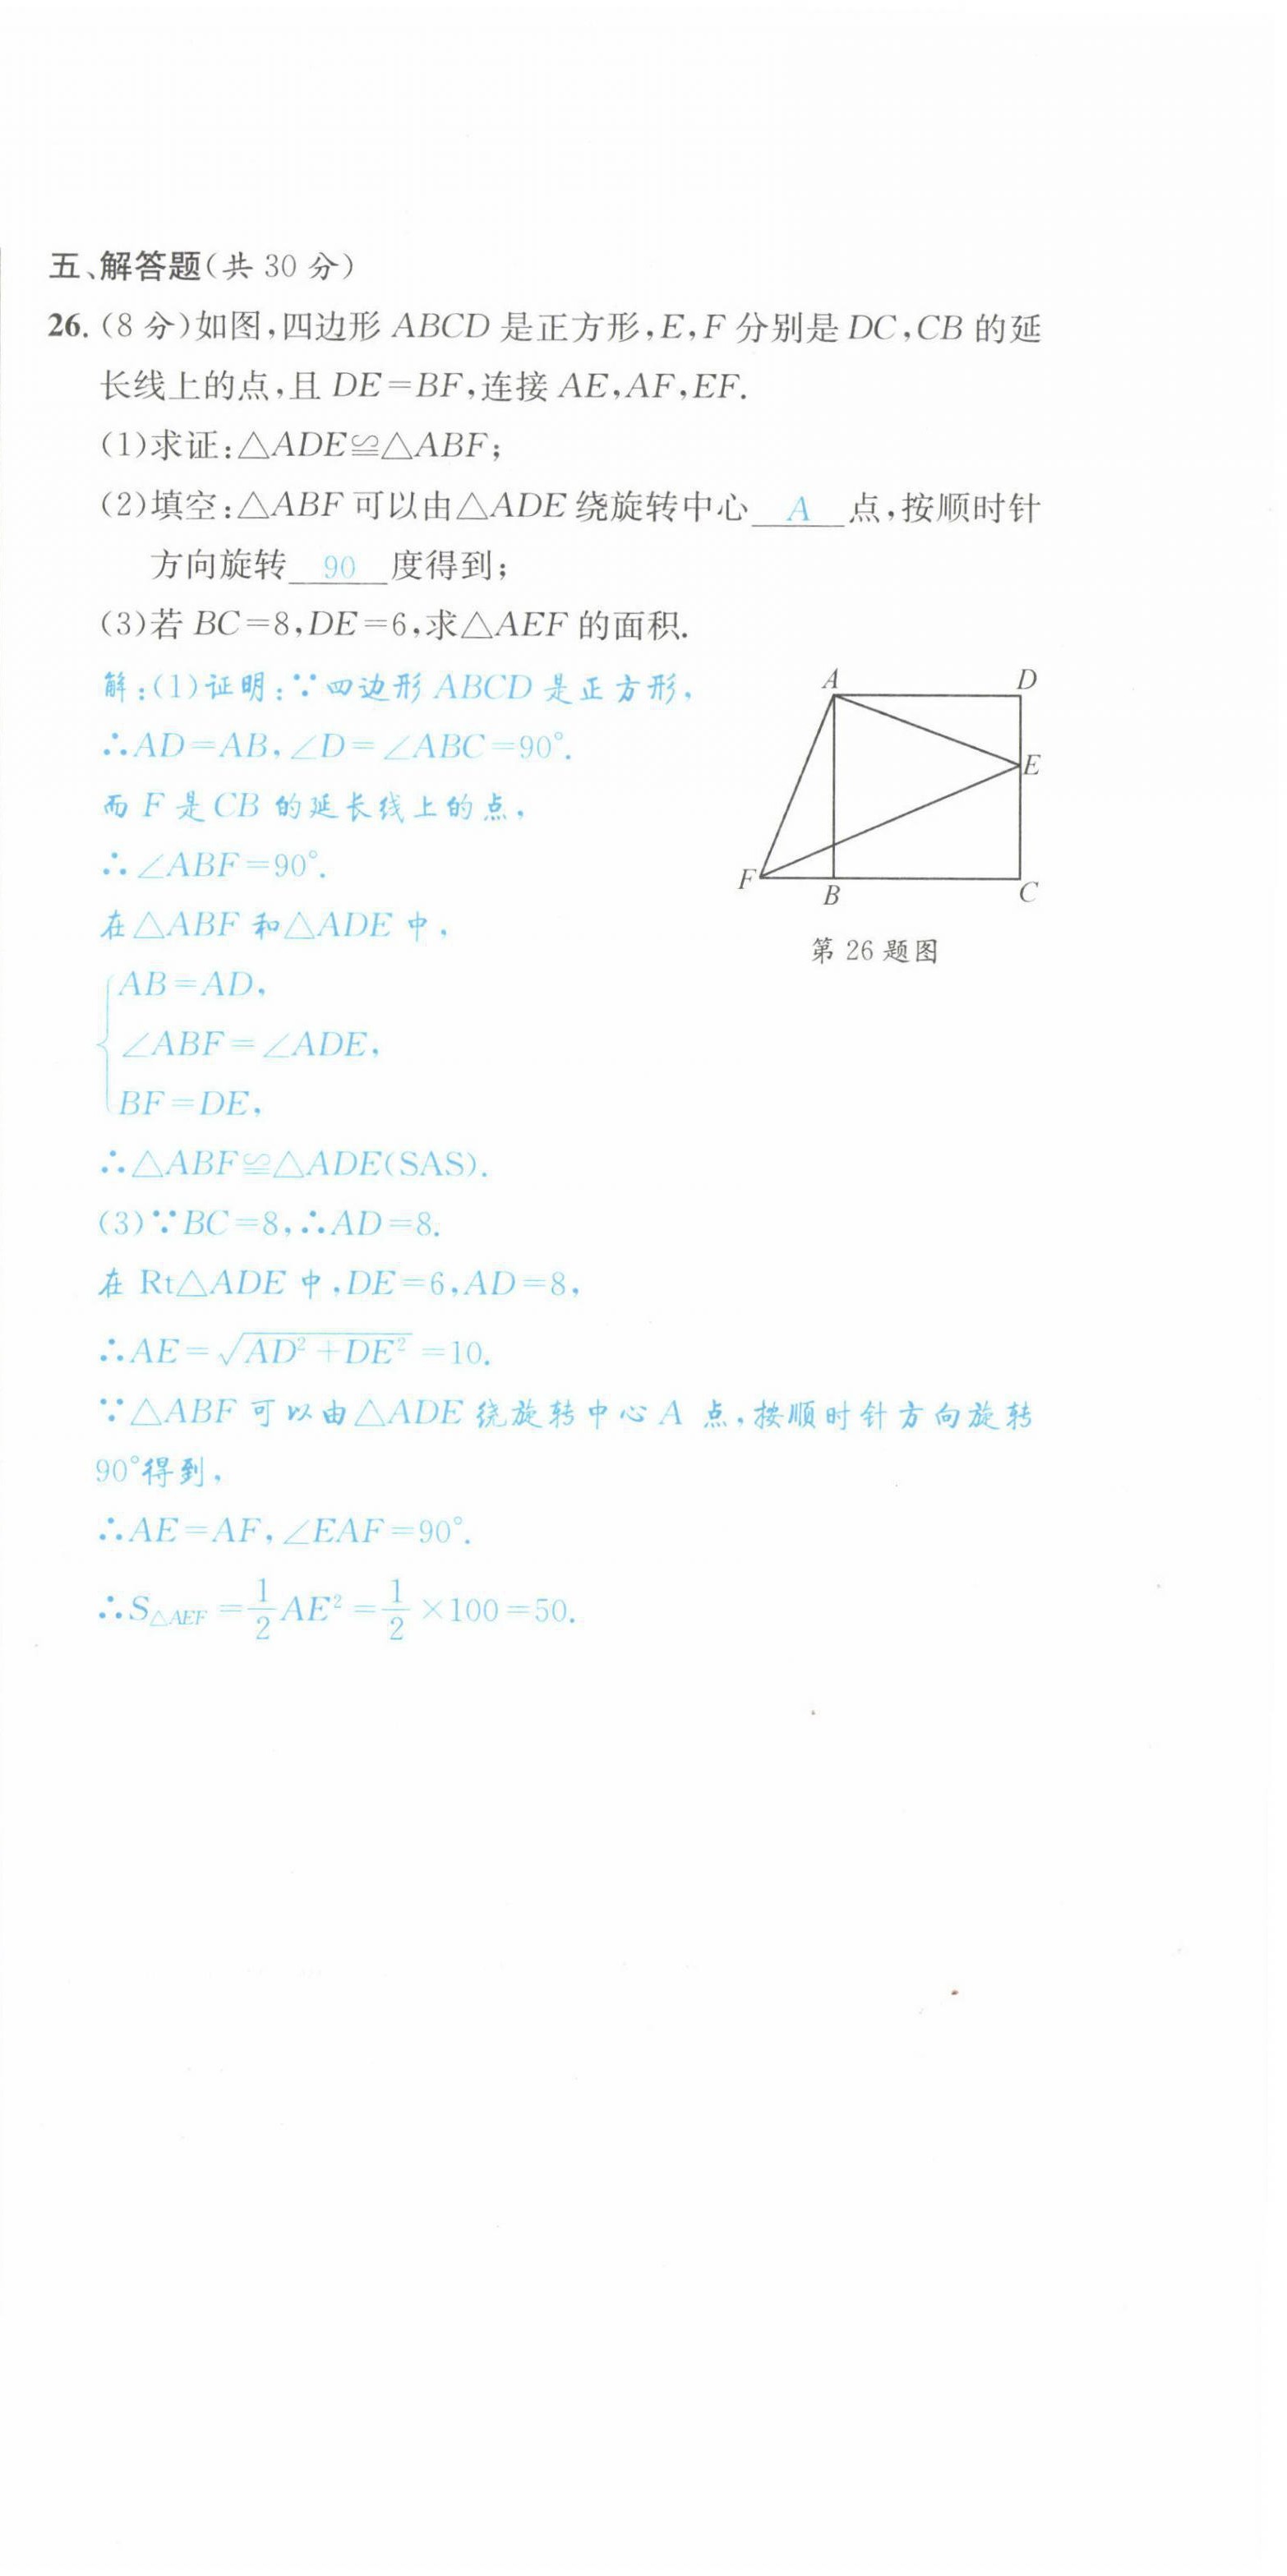 五、解答题(共 30 分)
26. (8 分)如图,四边形 ABCD 是正方形,E,F 分别是 DC,CB 的延
长线上的点,且 DE=BF,连接 AE,AF,EF.
(1)求证:△ADE≌△ABF;
(2)填空:△ABF 可以由△ADE 绕旋转中心 A 点,按顺时针
方向旋转 90 度得到;
(3)若 BC=8,DE=6,求△AEF 的面积.
解:(1)证明:∵四边形 ABCD 是正方形,
∴AD=AB,∠D=∠ABC=90°.
而 F 是 CB 的延长线上的点,
∴∠ABF=90°.
在△ABF 和△ADE 中,
AB=AD,
∠ABF=∠ADE,
BF=DE,
∴△ABF≌△ADE(SAS).
(3)∵BC=8,∴AD=8.
在 Rt△ADE 中,DE=6,AD=8,
∴AE=√(AD²+DE²)=10.
∵△ABF 可以由△ADE 绕旋转中心 A 点,按顺时针方向旋转
90°得到,
∴AE=AF,∠EAF=90°.
∴S△AEF=1/2 AE²=1/2×100=50.
A
D
E
F
B
C
第 26 题图